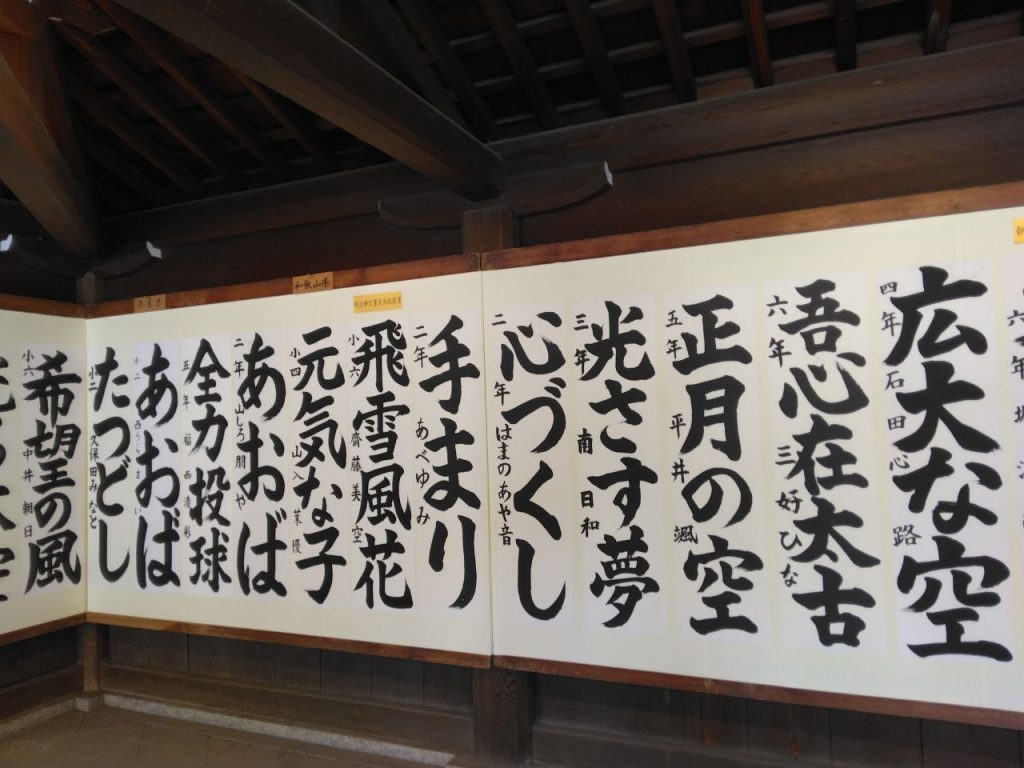 広大な空
四年 石田心路
吾心在太古
六年 三好ひな
正月の空
五年 平井颯
光さす夢
三年 南日和
心づくし
二年 はまのあや音
手まり
二年 あべゆみ
飛雪風花
小六 齋藤美空
和歌山県
元気な子
小四
あおば
二年 山しろ朋や
全力投球
五年
あおば
小二
たつどし
小二 久保田みなと
希望の風
小六 中井朝日